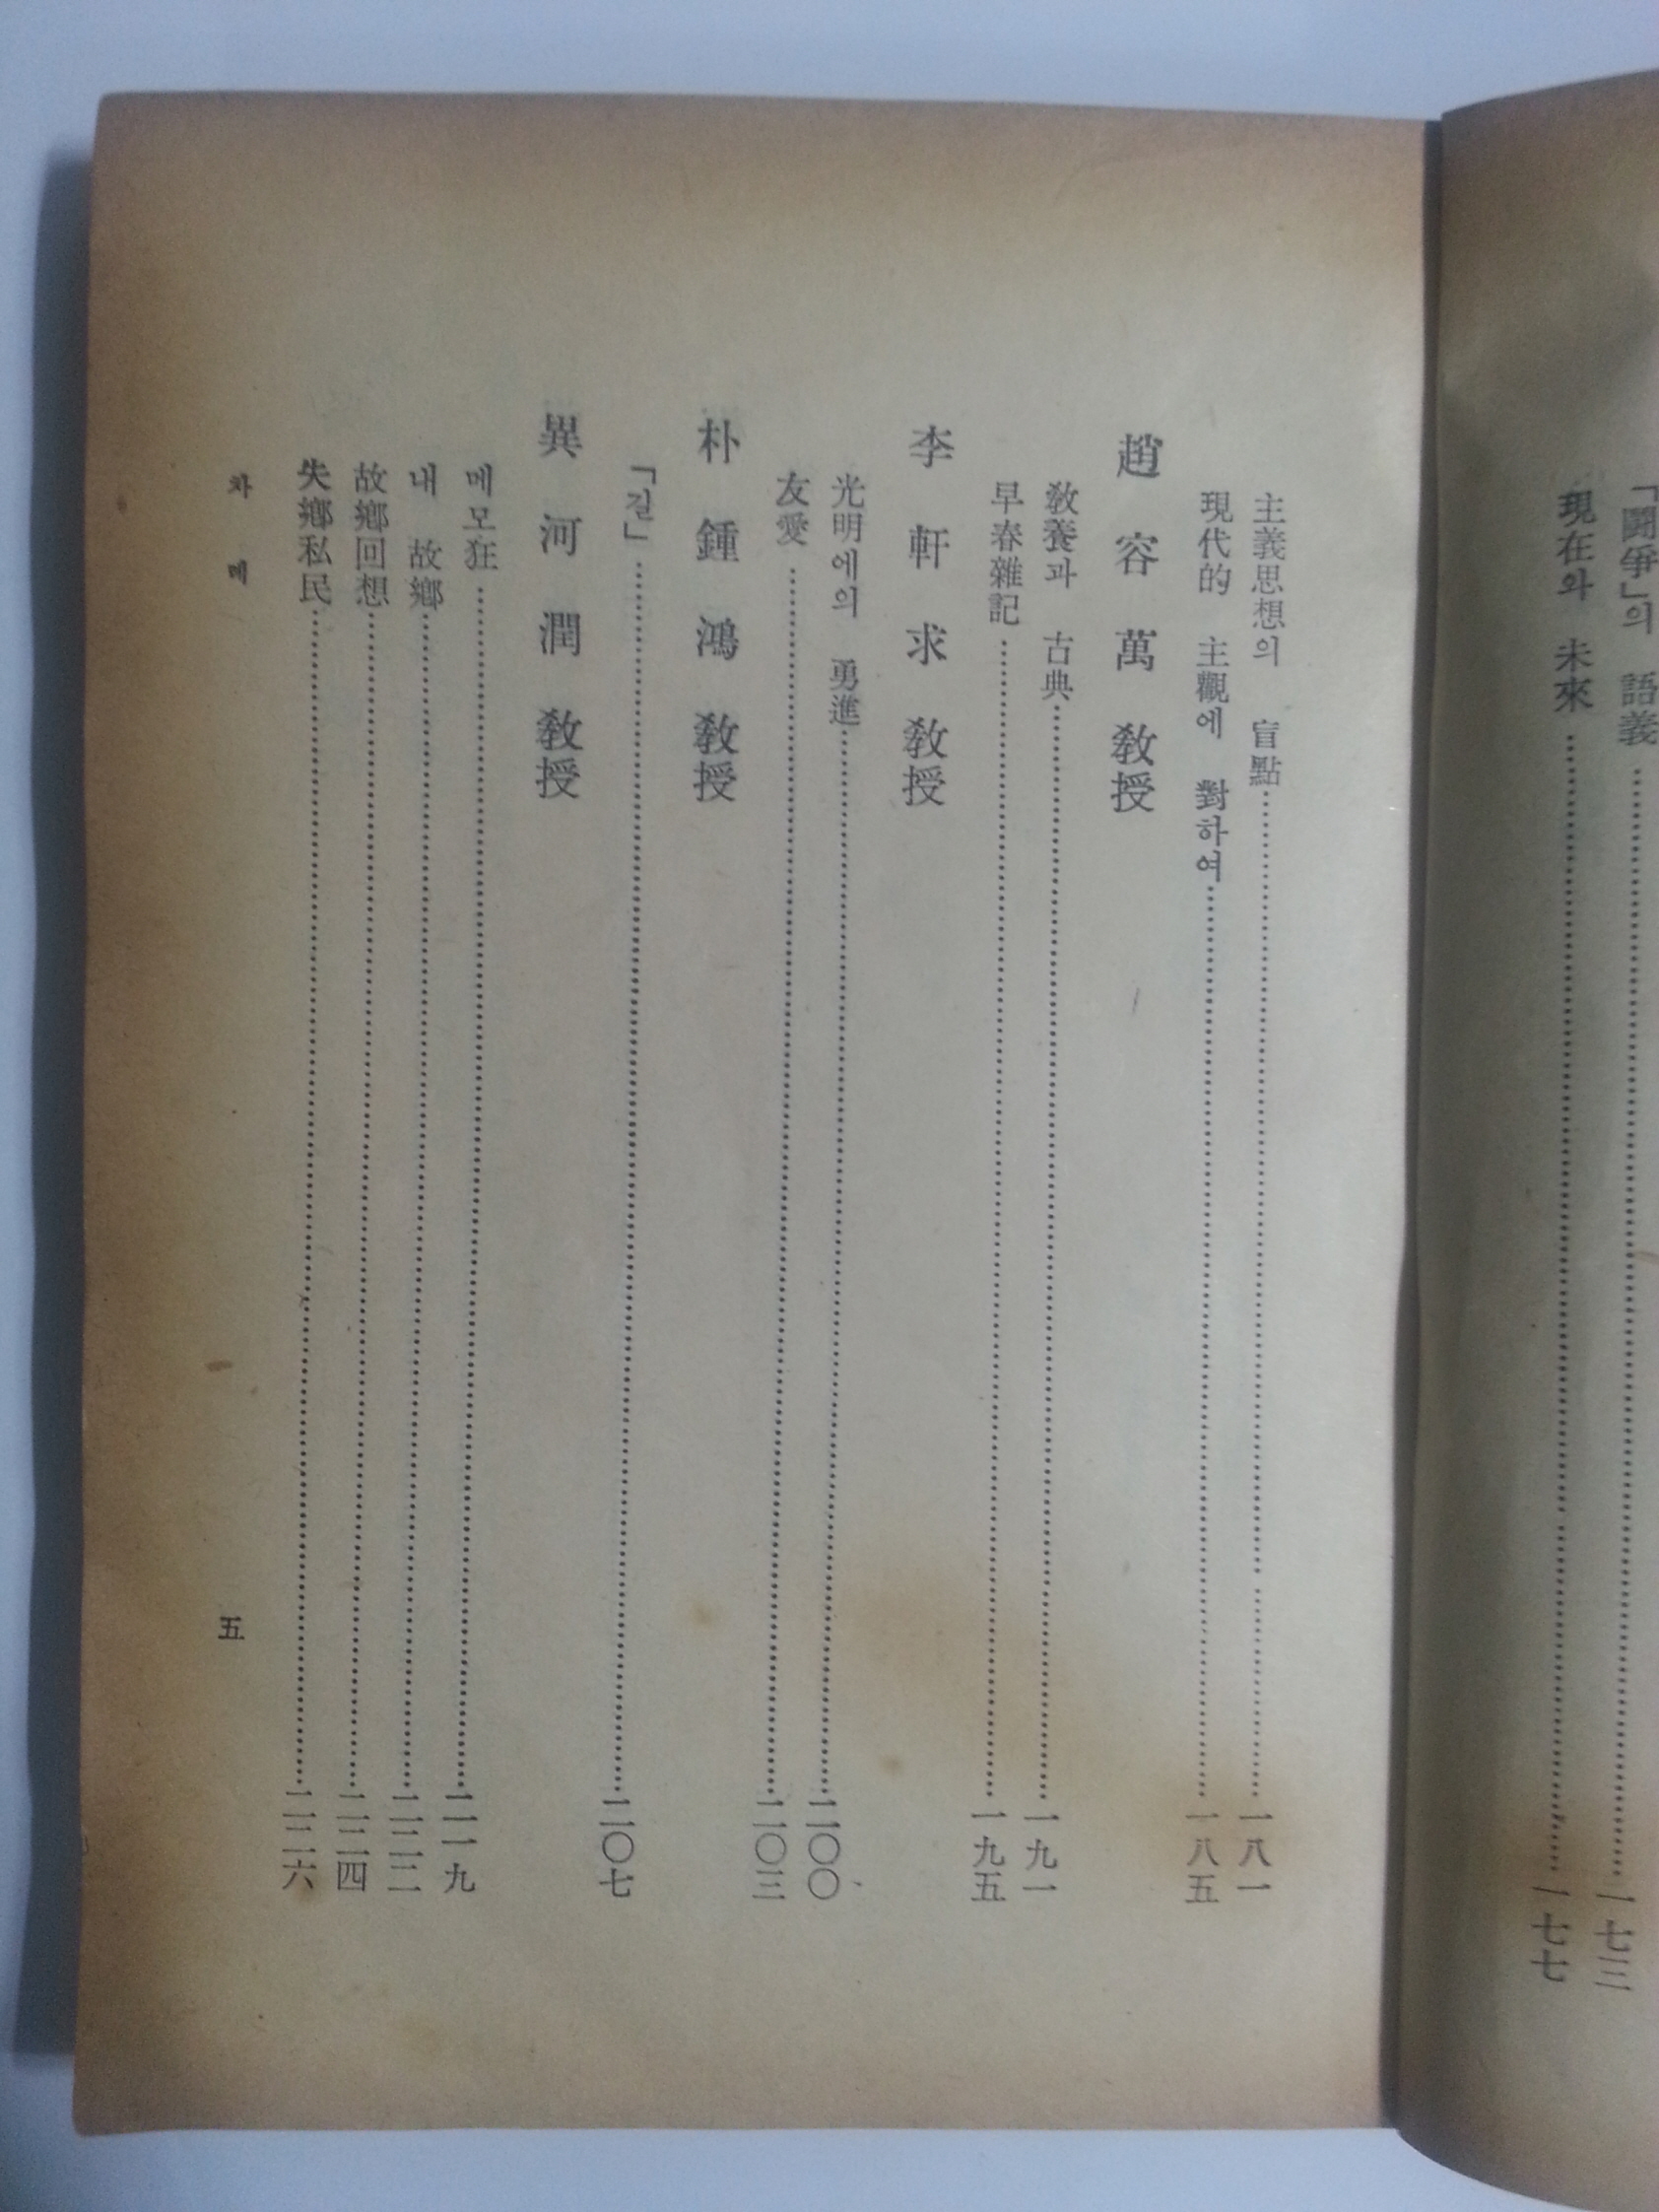 「鬪爭」의 語義……一七三
現在와 未來……一七七
主義思想의 盲點……一八一
現代的 主觀에 對하여……一八五
趙容萬 敎授
敎養과 古典……一九一
早春雜記……一九五
李軒求 敎授
光明에의 勇進……二〇〇
友愛……二〇三
朴鍾鴻 敎授
「길」……二〇七
異河潤 敎授
메모狂……二一九
내 故鄕……二二二
故鄕回想……二二四
失鄕私民……二二六
차 례
五